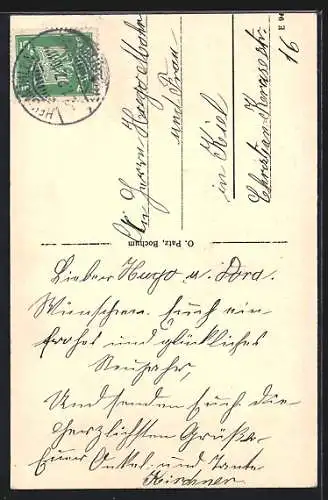 An Herrn Hugo
und Frau
in Kiel
Christian Kruse str.
16
O. Patz, Bochum
Lieber Hugo u. Dora.
Wünschen Euch ein
frohes und glückliches
Neujahr,
Und senden Euch die
herzlichsten Grüße
Euer Onkel und Tante
Kirchner